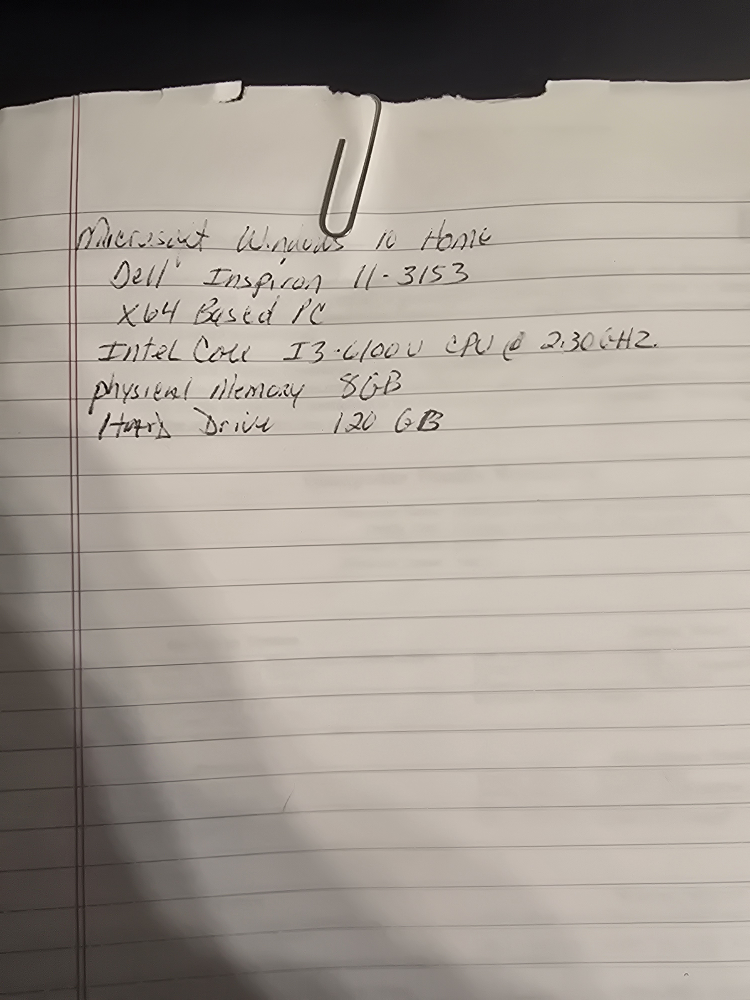 Microsoft Windows 10 Home
Dell Inspiron 11-3153
X64 Based PC
Intel Core I3-6100U CPU @ 2.30GHZ.
physical Memory 8GB
Hard Drive 120 GB